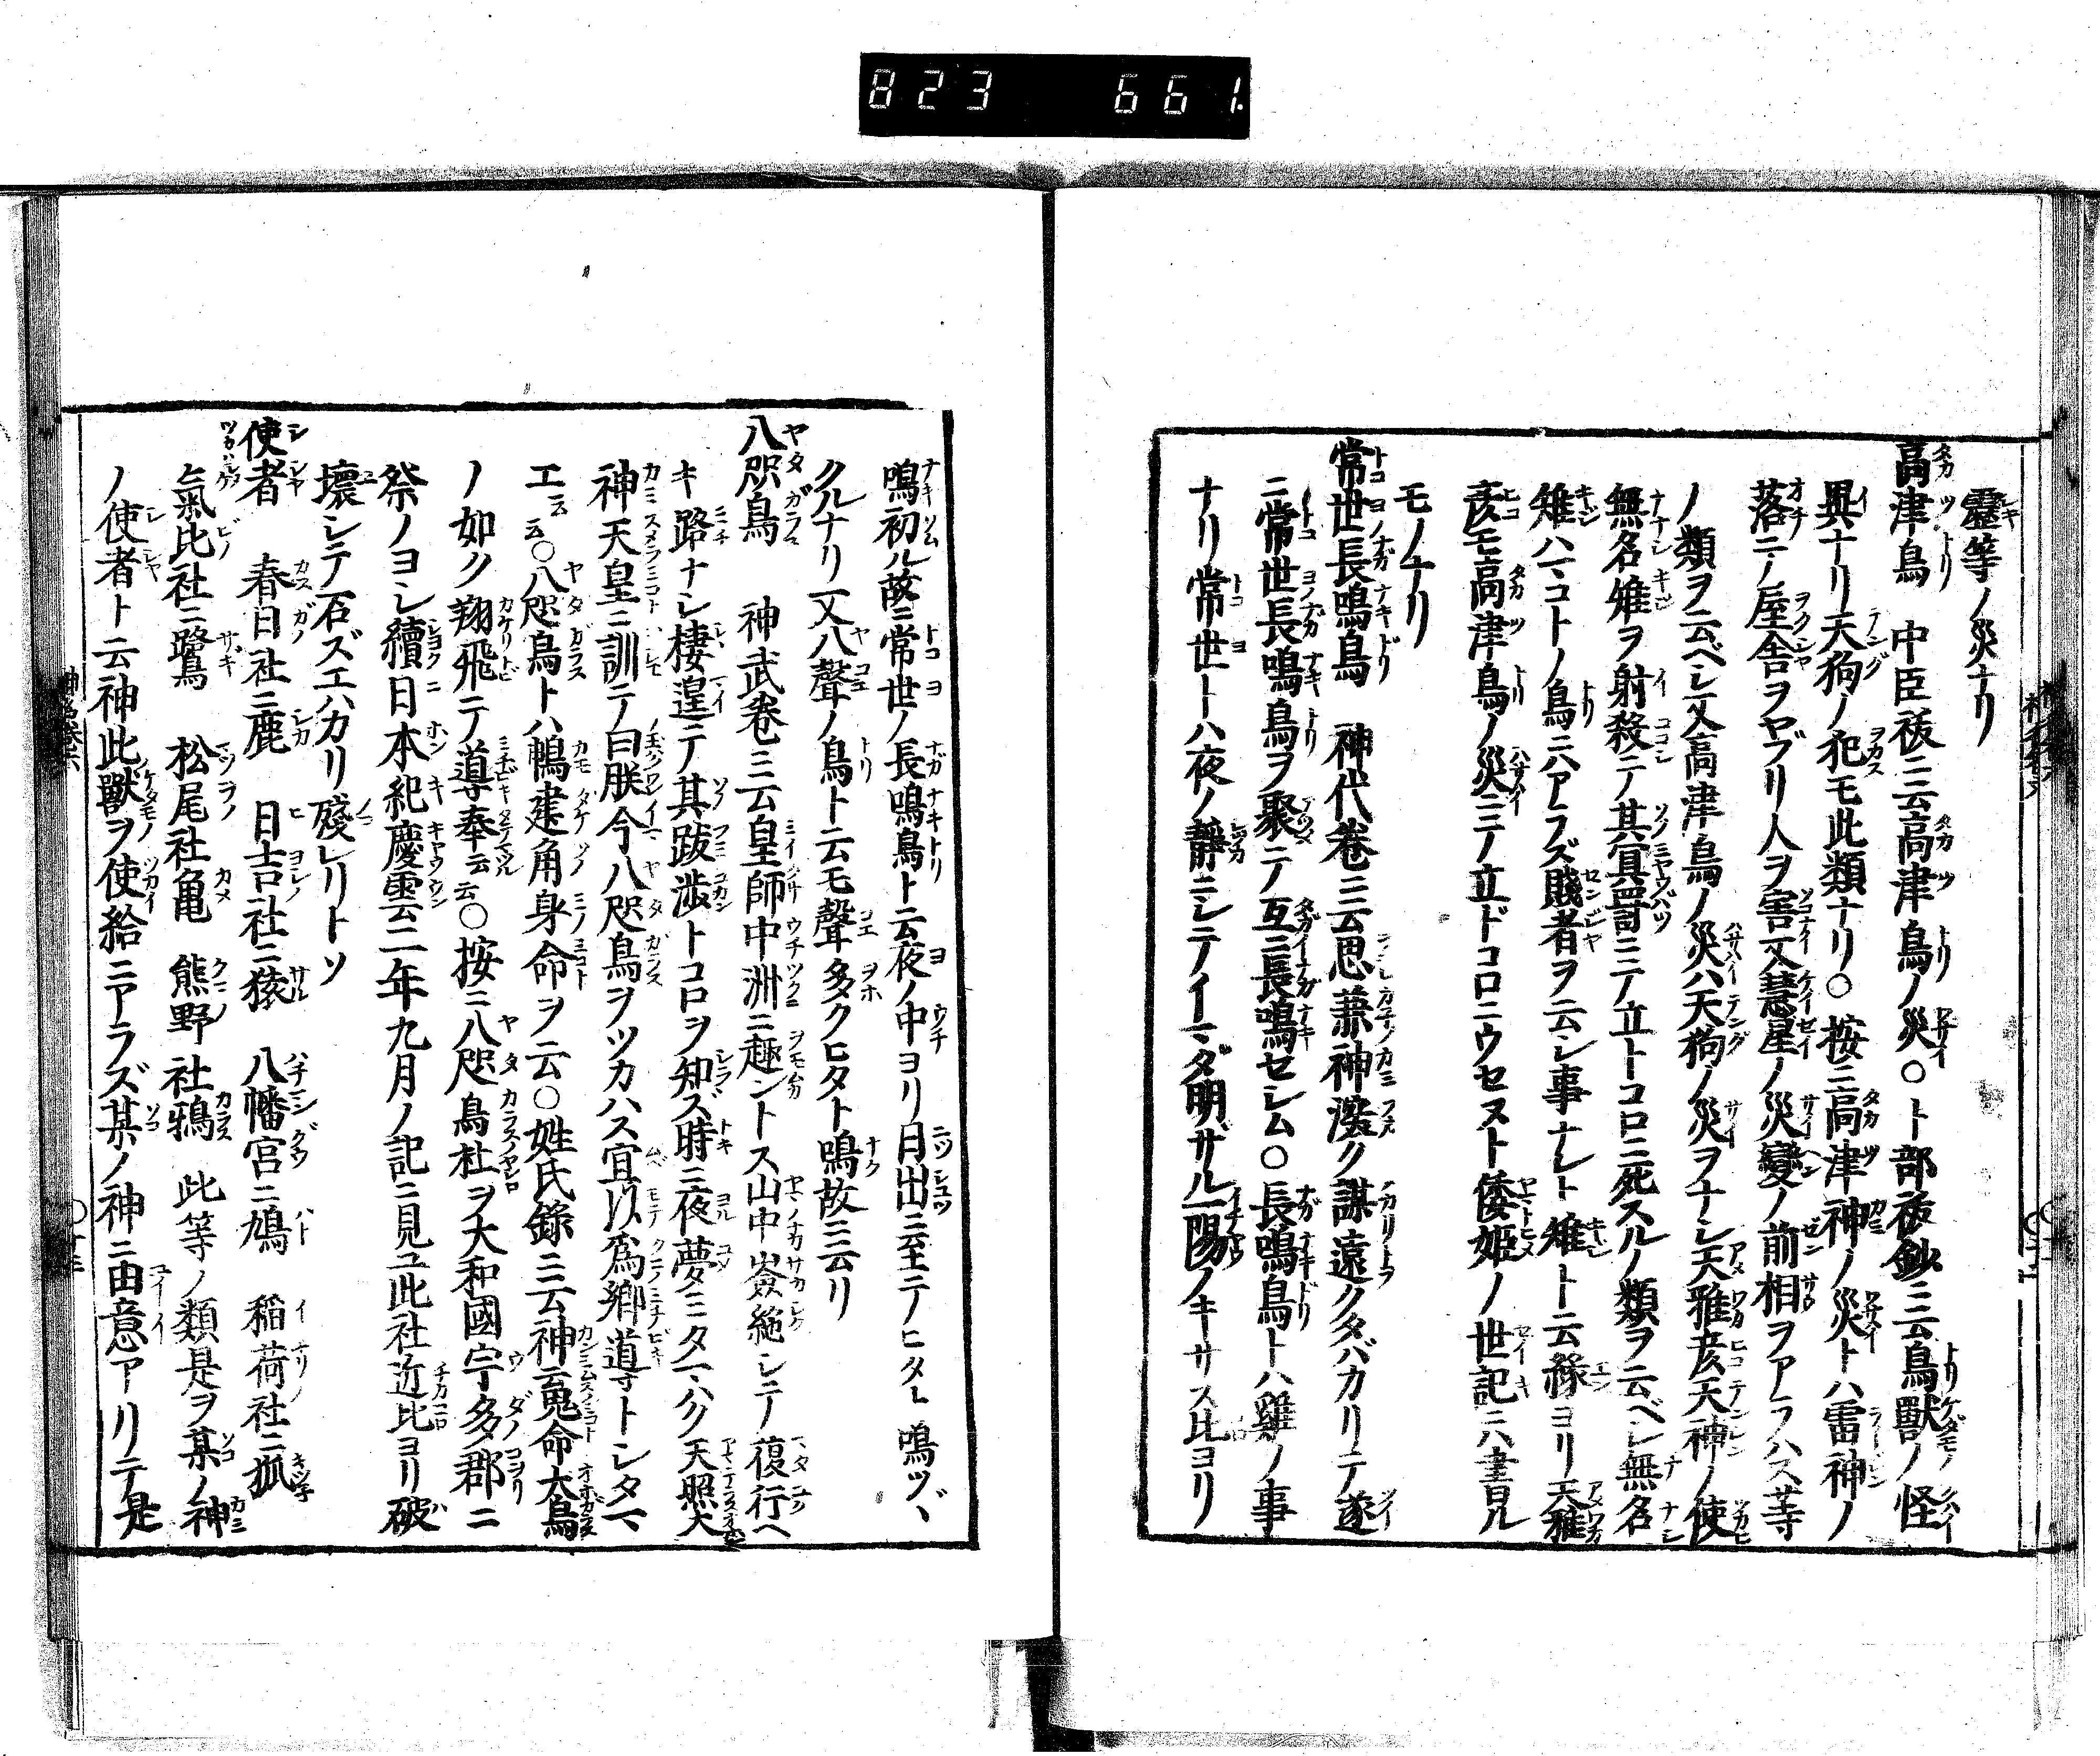 823 661
靈等ノ災ナリ
高津鳥 中臣祓ニ云高津鳥ノ災○卜部祓鈔ニ云鳥獸ノ怪
異ナリ天狗ノ犯モ此類ナリ○按ニ高津神ノ災トハ雷神ノ
落テノ屋舎ヲヤブリ人ヲ害又慧星ノ災變ノ前相ヲアラハス等
ノ類ヲ云ベシ又高津鳥ノ災ハ天狗ノ災ヲナシ天雅彦天神ノ使
無名雉ヲ射殺テ其冥罸ニテ立トコロニ死スルノ類ヲ云ベシ無名
雉ハマコトノ鳥ニハアラズ賤者ヲ云シ事ナレト雉ト云緣ヨリ天雅
彦モ高津鳥ノ災ニテ立ドコロニウセヌト倭姬ノ世記ニハ書ル
モノナリ
常世長鳴鳥 神代卷ニ云思兼神深ク謀遠クタバカリテ遂
ニ常世長鳴鳥ヲ聚テ互ニ長鳴セシム○長鳴鳥トハ雞ノ事
ナリ常世トハ夜ノ靜ニシテイマダ明ザル一陽ノキサス比ヨリ
鳴初ル故ニ常世ノ長鳴鳥ト云夜ノ中ヨリ日出ニ至テヒタト鳴ツヾ
クルナリ又八聲ノ鳥ト云モ聲多クヒタト鳴故ニ云リ
八咫烏 神武卷ニ云皇師中洲ニ趣ントス山中嶮絶シテ復行ヘ
キ路ナシ棲遑テ其跋渉トコロヲ知ズ時ニ夜夢ミタマハク天照大
神天皇ニ訓テノ曰朕今八咫烏ヲツカハス宜以爲鄕導トシタマ
エ云云○八咫烏トハ鴨建角身命ヲ云○姓氏錄ニ云神魂命大烏
ノ如ク翔飛テ導奉云云○按ニ八咫烏社ヲ大和國宇多ノ郡ニ
祭ノヨシ續日本紀慶雲二年九月ノ記ニ見ユ此社近比ヨリ破
壞シテ石ズエハカリ殘レリトソ
使者 春日社ニ鹿 日吉社ニ猿 八幡宮ニ鳩 稲荷社ニ狐
氣比社ニ鷺 松尾社亀 熊野社鴉 此等ノ類是ヲ某ノ神
ノ使者ト云神此獸ヲ使給ニアラズ某ノ神ニ由意アリテ是